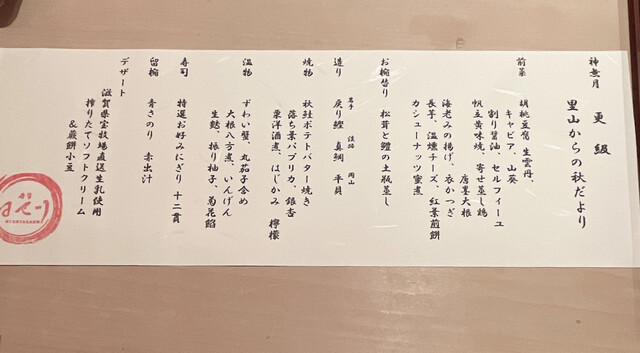 神無月
更級
里山からの秋だより
前菜
胡桃豆腐 生雲丹、
キャビア、山葵
割り醤油、セルフィーユ
帆立黄味焼、寄せ蒸し鶏
唐墨大根
海老みの揚げ、衣かつぎ
長芋、温燻チーズ、紅葉煎餅
カシューナッツ蜜煮
お椀替り
松茸と鱧の土瓶蒸し
造り
岩手 淡路 岡山
戻り鰹 真鯛 平貝
焼物
秋鮭ポテトバター焼き
落ち葉パプリカ、銀杏
栗洋酒煮、はじかみ 檸檬
温物
ずわい蟹、丸茄子含め
大根八方煮、いんげん
生麩、振り柚子、菊花餡
寿司
特選お好みにぎり 十二貫
留椀
青さのり 赤出汁
デザート
滋賀県宝牧場直送生乳使用
搾りたてソフトクリーム
&蕨餅小豆